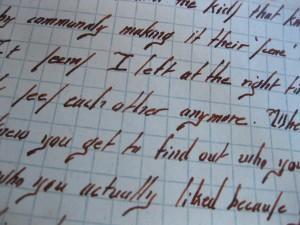 the kids that kn
by commonly making it their 'one'
It seems I left at the right ti
see each other anymore. Whe
you get to find out who you
who you actually liked because